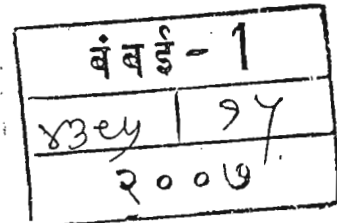 बंबई - 1
४३९५ | १५
२००७